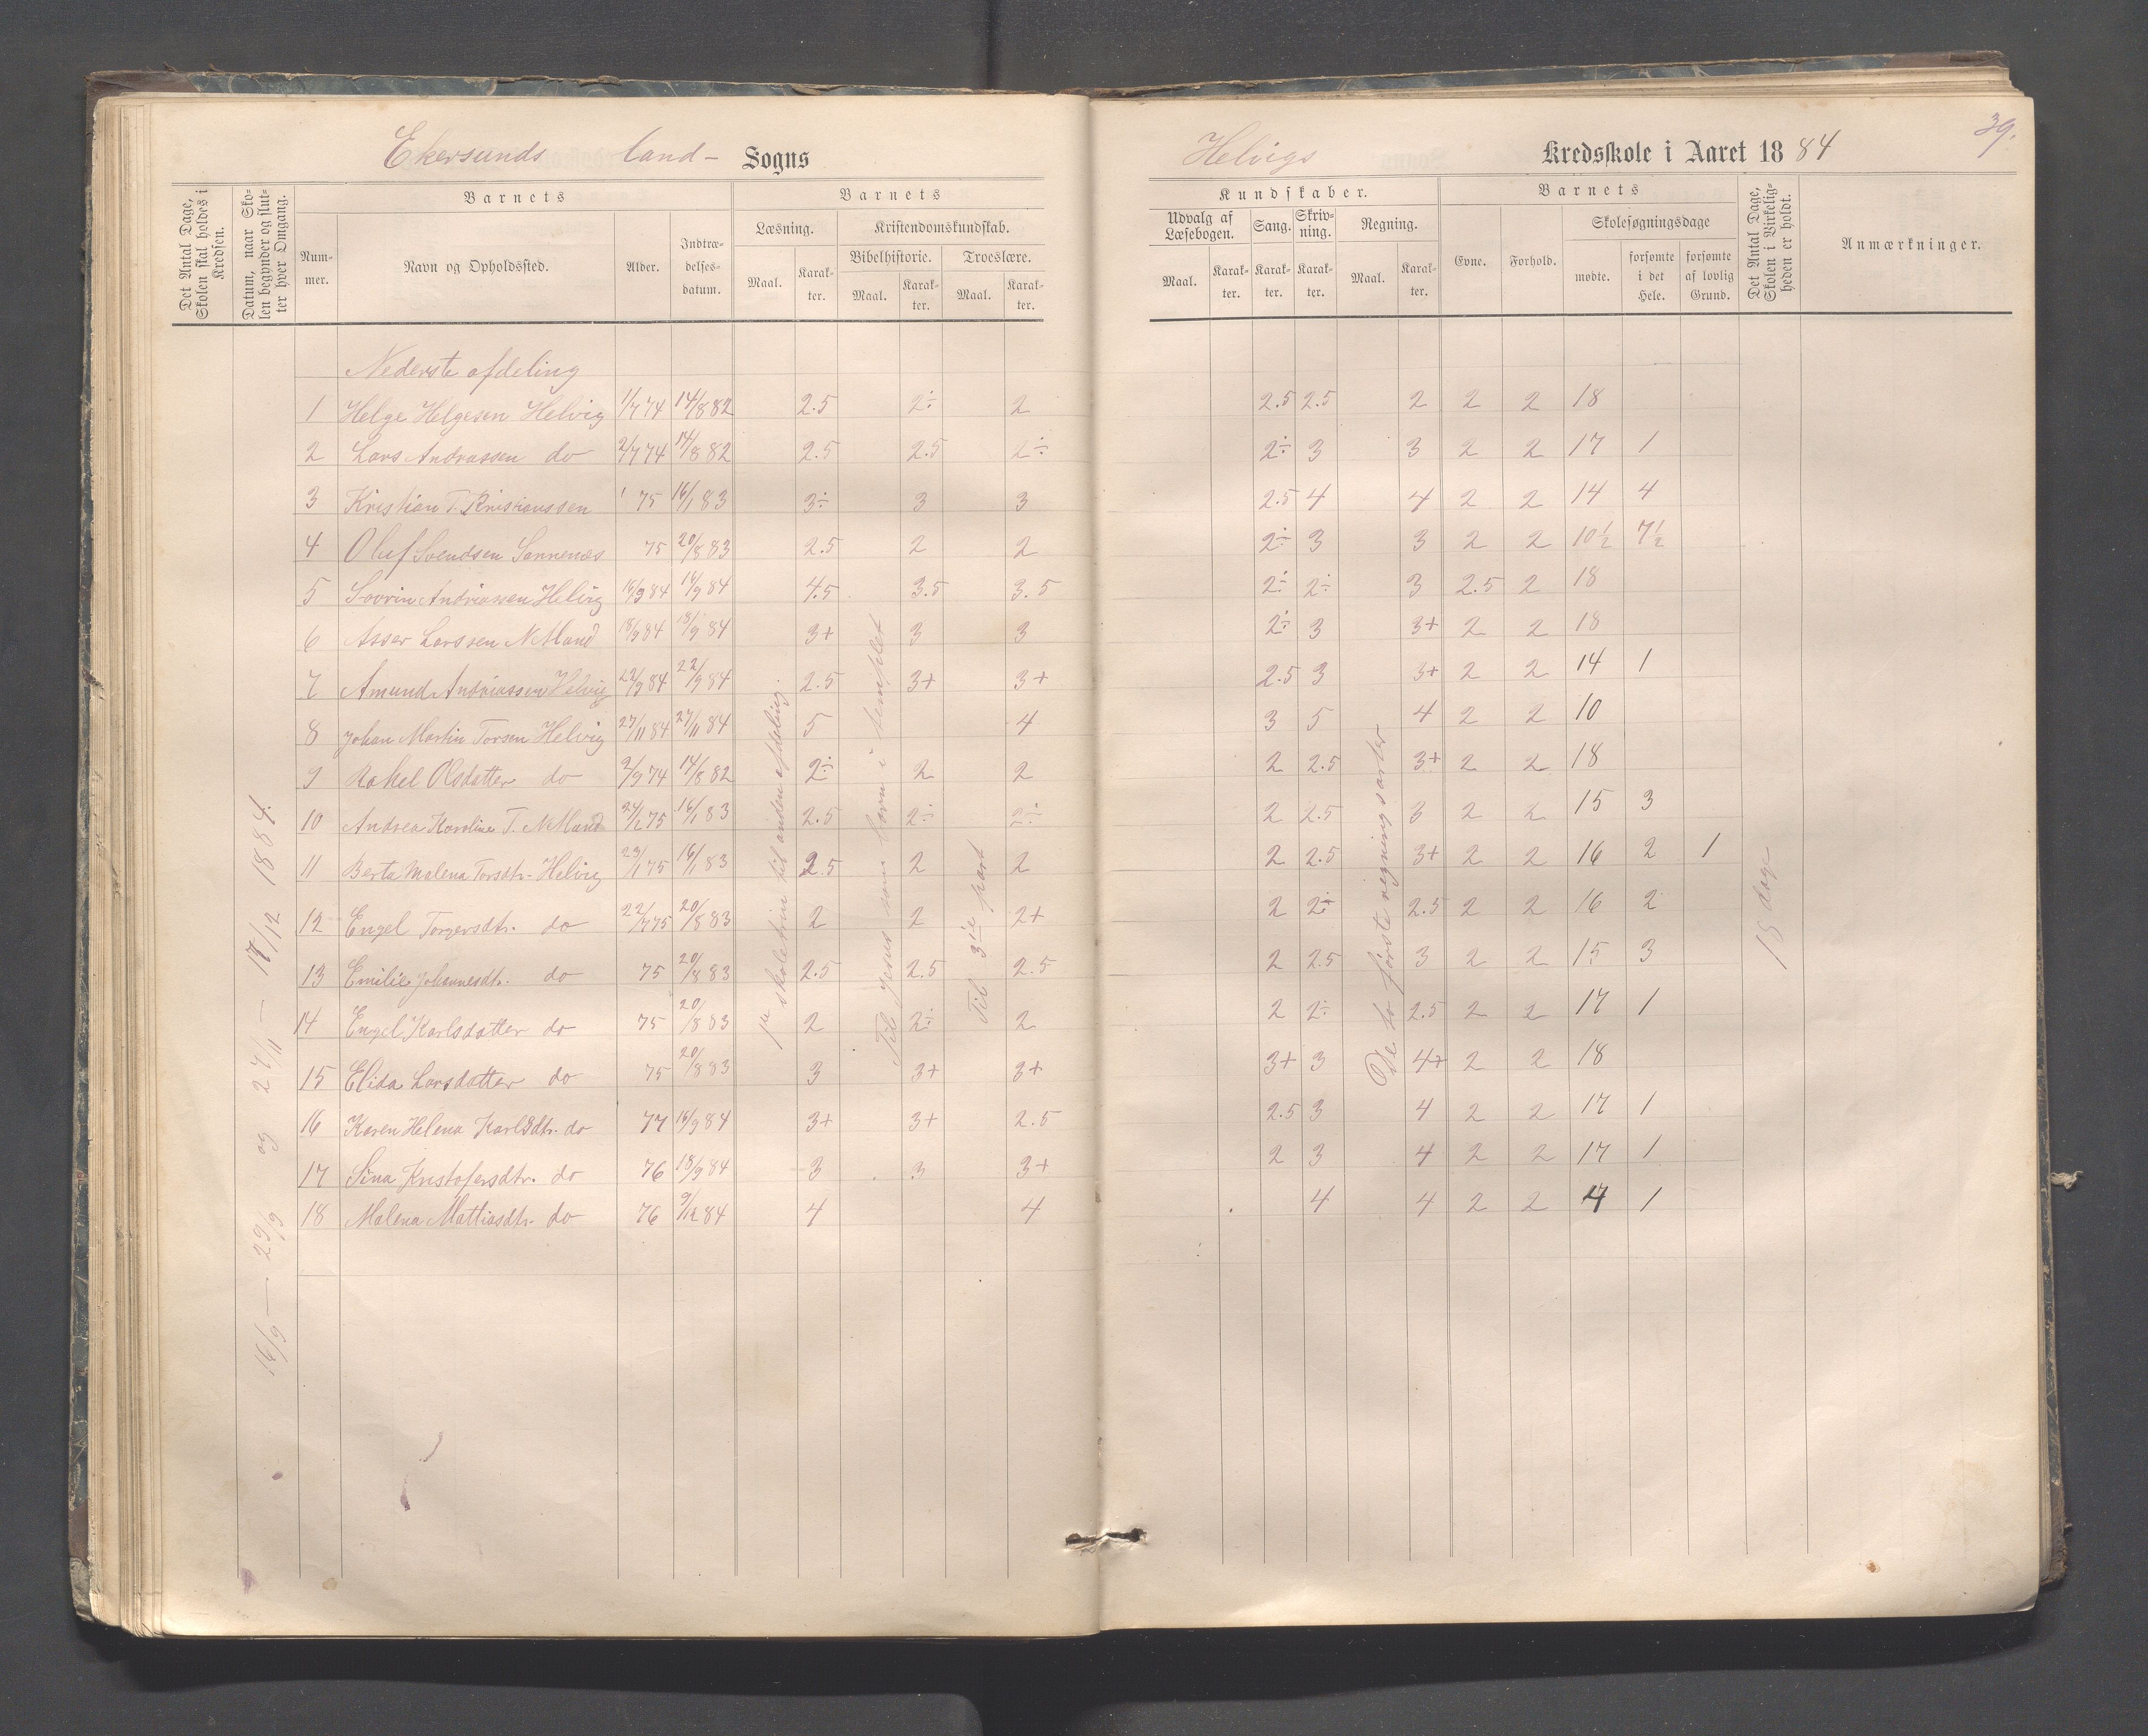 Ekersunds land- Sogns
Helvigs Kredsskole i Aaret 1884
39.
Det Antal Dage, Skolen skal holdes i Kredsen.
Datum, naar Skolen begynder og slutter hver Omgang.
Barnets
Nummer.
Navn og Opholdssted.
Alder.
Indtrædelsesdatum.
Barnets
Læsning.
Maal.
Karakter.
Kristendomskundskab.
Bibelhistorie.
Maal.
Karakter.
Troeslære.
Maal.
Karakter.
Kundskaber.
Udvalg af Læsebogen.
Maal.
Karakter.
Sang.
Karakter.
Skrivning.
Karakter.
Regning.
Maal.
Karakter.
Barnets
Evne.
Forhold.
Skolesøgningsdage
mødte.
forsømte i det Hele.
forsømte af lovlig Grund.
Det Antal Dage, Skolen i Virkeligheden er holdt.
Anmærkninger.
Nederste afdeling
1 Helge Helgesen Helvig 1/7 74 14/8 82 2.5 2÷ 2 2.5 2.5 2 2 2 18
2 Lars Andreassen do 2/7 74 14/8 82 2.5 2.5 2÷ 2÷ 3 3 2 2 17 1
3 Kristian T. Kristianssen 75 16/1 83 3÷ 3 3 2.5 4 4 2 2 14 4
4 Oluf Svendsen 75 20/8 83 2.5 2 2 2÷ 3 3 2 2 10½ 7½
5 Sovrin Andreassen Helvig 16/9 84 16/9 84 4.5 3.5 3.5 2÷ 2÷ 3 2.5 2 18
6 Asser Larssen 18/9 84 18/9 84 3+ 3 3 2÷ 3 3+ 2 2 18
7 Amund Andreassen Helvig 22/9 84 22/9 84 2.5 3+ 3+ 2.5 3 3+ 2 2 14 1
8 Johan Martin Torsen Helvig 27/11 84 27/11 84 5 4 3 5 4 2 2 10
9 Rakel Olsdatter do 2/9 74 14/8 82 2÷ 2 2 2 2.5 3+ 2 2 18
10 Andrea Karoline T. 24/2 75 16/1 83 2.5 2÷ 2÷ 2 2.5 3 2 2 15 3
11 Berta Malena Torsdtr. Helvig 23/1 75 16/1 83 2.5 2 2 2 2.5 3+ 2 2 16 2 1
12 Engel Torgersdtr. do 22/7 75 20/8 83 2 2 2+ 2 2÷ 2.5 2 2 16 2
13 Emilie Johannesdtr. do 75 20/8 83 2.5 2.5 2.5 2 2.5 3 2 2 15 3
14 Engel Karlsdatter do 75 20/8 83 2 2÷ 2 2 2÷ 2.5 2 2 17 1
15 Elida Larsdatter do 75 20/8 83 3 3+ 3+ 3+ 3 4+ 2 2 18
16 Karen Helena Karlsdtr. do 77 16/9 84 3+ 3+ 2.5 2.5 3 4 2 2 17 1
17 Sina Kristofersdtr. do 76 18/9 84 3 3 3+ 2 3 4 2 2 17 1
18 Malena Mattiasdtr. do 76 9/12 84 4 4 4 4 2 2 4 1
16/9 — 29/9 og 27/11 — 17/12 1884.
skoletrin til anden afdeling.
Til Jesus som barn i templet
Til 3die part
De to første regningsarter
18 dage